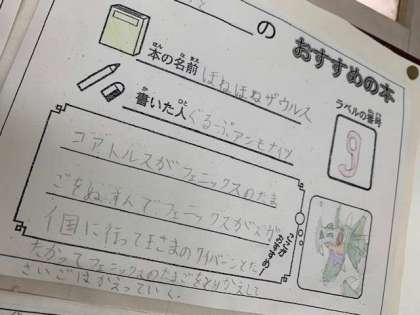 の
おすすめの本
本の名前 ほねほねザウルス
ほん なまえ
書いた人 ぐるーぷ・アンモナイツ
か ひと
ラベルの番号
9
コアトルスがフェニックスのたま
ごをぬすんでフェニックスが
イ国に行って王さまのワイバーンとた
たかってフェニックスのたまごをとりかえして
さいごはかえっていく。
ここがおすすめ!